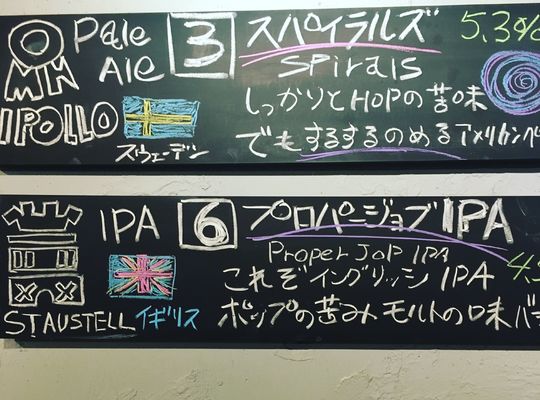 Pale Ale
3
スパイラルズ
5.3%
Spirals
OMNIPOLLO
しっかりとHOPの苦味
でもするするのめるアメリカンペ
スウェーデン
IPA
6
プロパージョブIPA
Proper Jop IPA
4.
これぞイングリッシュ IPA
ST.AUSTELL
イギリス
ホップの苦み モルトの味 バ